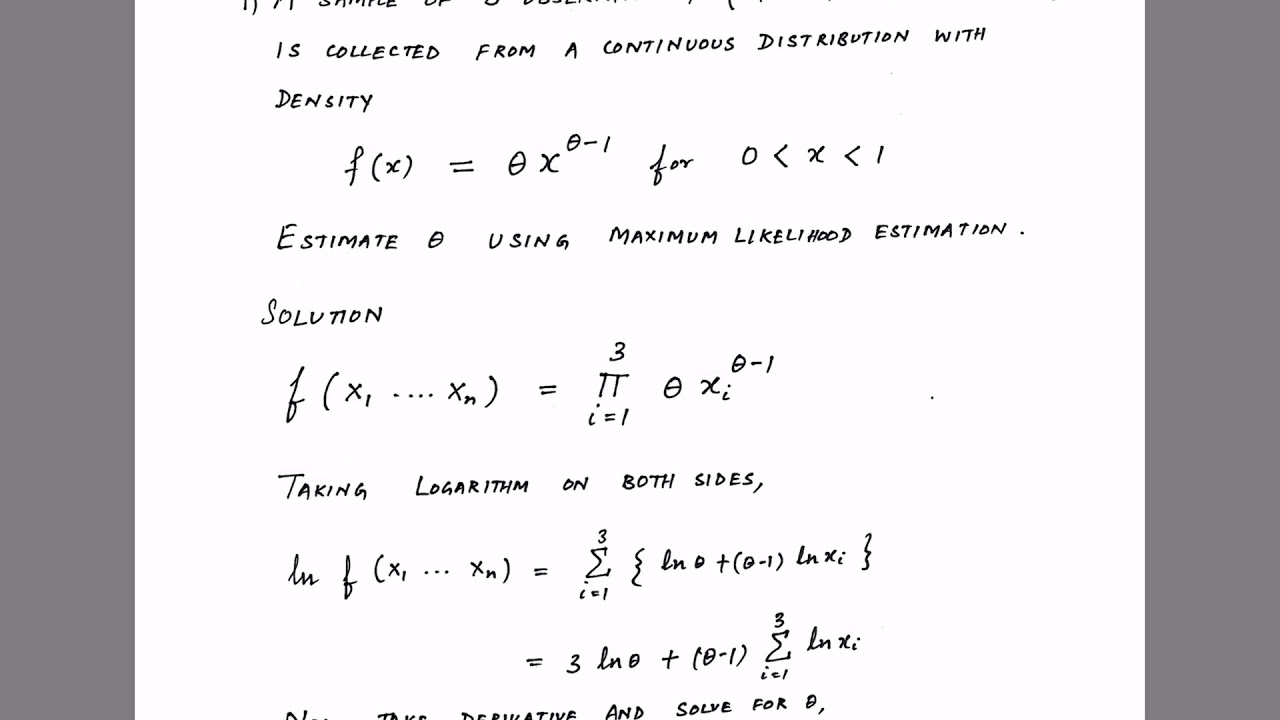 1) A SAMPLE OF 3
IS COLLECTED FROM A CONTINUOUS DISTRIBUTION WITH
DENSITY
f(x) = θ x^(θ-1) for 0 < x < 1
ESTIMATE θ USING MAXIMUM LIKELIHOOD ESTIMATION.
SOLUTION
f (x₁ .... xₙ) = ∏_{i=1}^{3} θ xᵢ^(θ-1)
TAKING LOGARITHM ON BOTH SIDES,
ln f (x₁ ... xₙ) = ∑_{i=1}^{3} { ln θ + (θ-1) ln xᵢ }
= 3 ln θ + (θ-1) ∑_{i=1}^{3} ln xᵢ
TAKE DERIVATIVE AND SOLVE FOR θ,